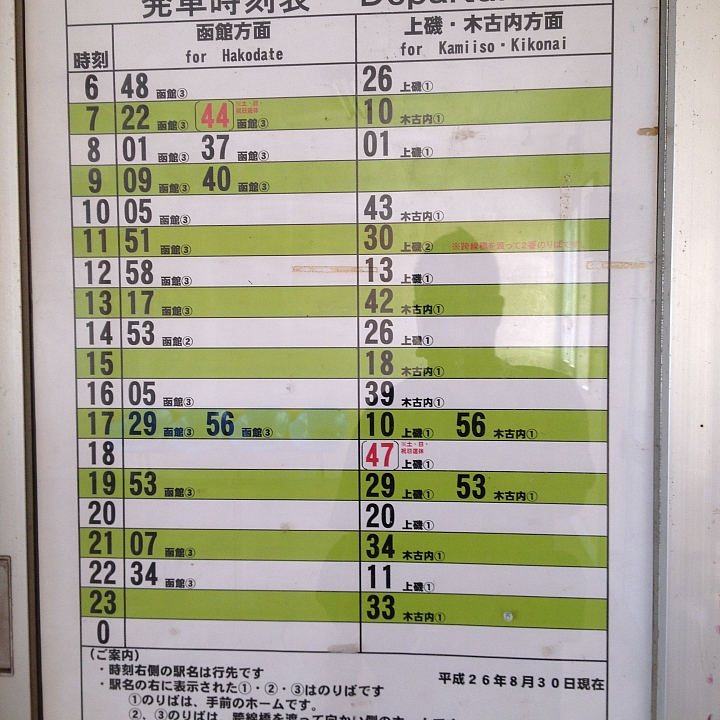 発車時刻表 Departure
時刻 函館方面 for Hakodate 上磯・木古内方面 for Kamiiso・Kikonai
6 48 函館③ 26 上磯①
7 22 函館③ 44 ※土・日・祝日運休 函館③ 10 木古内①
8 01 函館③ 37 函館③ 01 上磯①
9 09 函館③ 40 函館③
10 05 函館③ 43 木古内①
11 51 函館③ 30 上磯② ※跨線橋を渡って2番のりばです
12 58 函館③ 13 上磯①
13 17 函館③ 42 木古内①
14 53 函館② 26 上磯①
15 18 木古内①
16 05 函館③ 39 木古内①
17 29 函館③ 56 函館③ 10 上磯① 56 木古内①
18 47 ※土・日・祝日運休 上磯①
19 53 函館③ 29 上磯① 53 木古内①
20 20 上磯①
21 07 函館③ 34 木古内①
22 34 函館③ 11 上磯①
23 33 木古内①
0
(ご案内)
・時刻右側の駅名は行先です
平成26年8月30日現在
・駅名の右に表示された①・②・③はのりばです
①のりばは、手前のホームです。
②、③のりばは、跨線橋を渡って向かい側のホームです